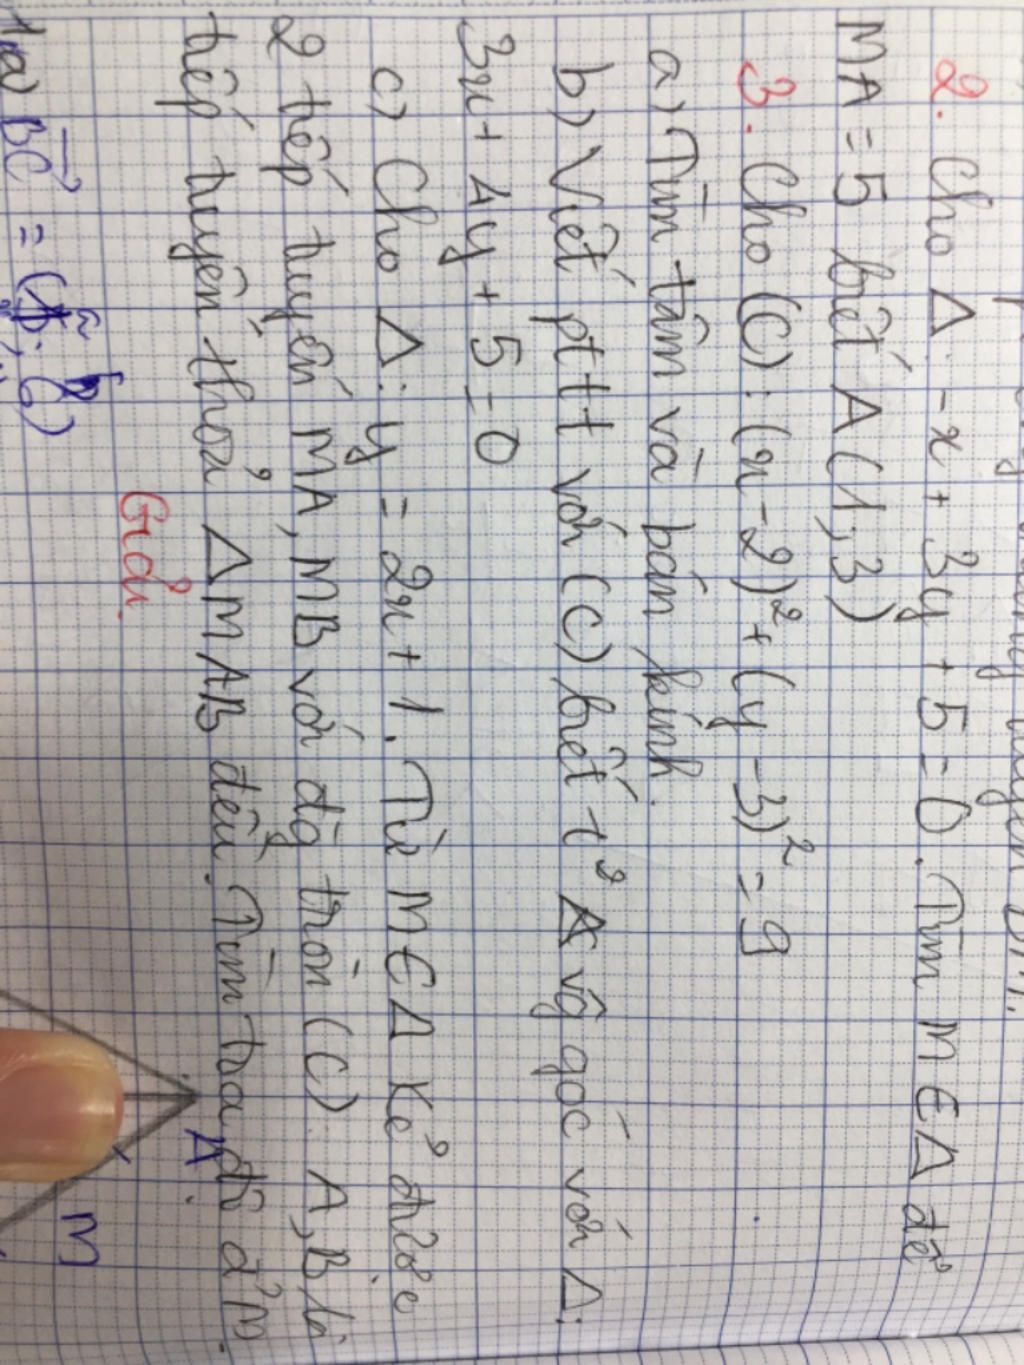 2. Cho Δ: -x + 3y + 5 = 0. Tìm M ∈ Δ để
MA = 5 biết A(1,3)
3. Cho (C): (x-2)² + (y-3)² = 9
a) Tìm tâm và bán kính.
b) Viết pttt với (C) biết t² vg góc với Δ:
3x + 4y + 5 = 0
c) Cho Δ: y = 2x + 1. Từ M ∈ Δ kẻ được
2 tiếp tuyến MA, MB với đg tròn (C). A, B là
tiếp tuyến thoả Δ MAB đều. Tìm toạ độ M.
Giải.
A
M
1a) BC =